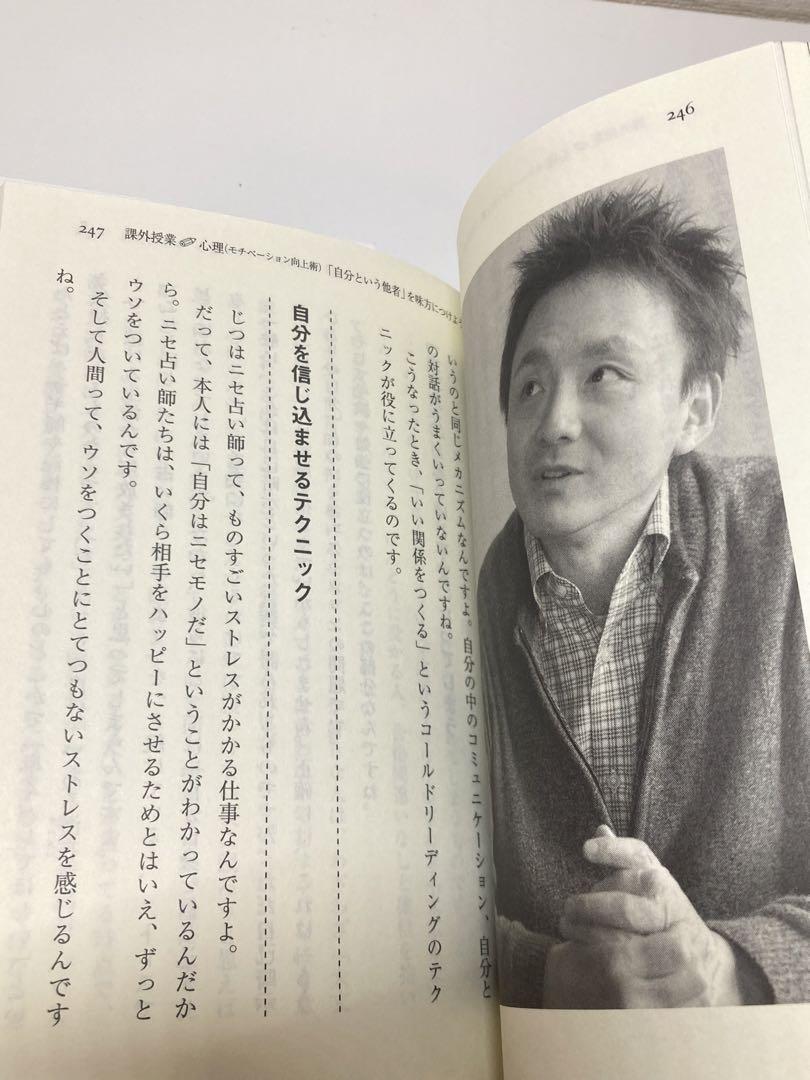 246
247 課外授業 心理(モチベーション向上術)「自分という他者」を味方につけよう
いうのと同じメカニズムなんですよ。自分の中のコミュニケーション、自分と
の対話がうまくいっていないんですね。
こうなったとき、「いい関係をつくる」というコールドリーディングのテク
ニックが役に立ってくるのです。
自分を信じ込ませるテクニック
じつはニセ占い師って、ものすごいストレスがかかる仕事なんですよ。
だって、本人には「自分はニセモノだ」ということがわかっているんだか
ら。ニセ占い師たちは、いくら相手をハッピーにさせるためとはいえ、ずっと
ウソをついているんです。
そして人間って、ウソをつくことにとてつもないストレスを感じるんです
ね。